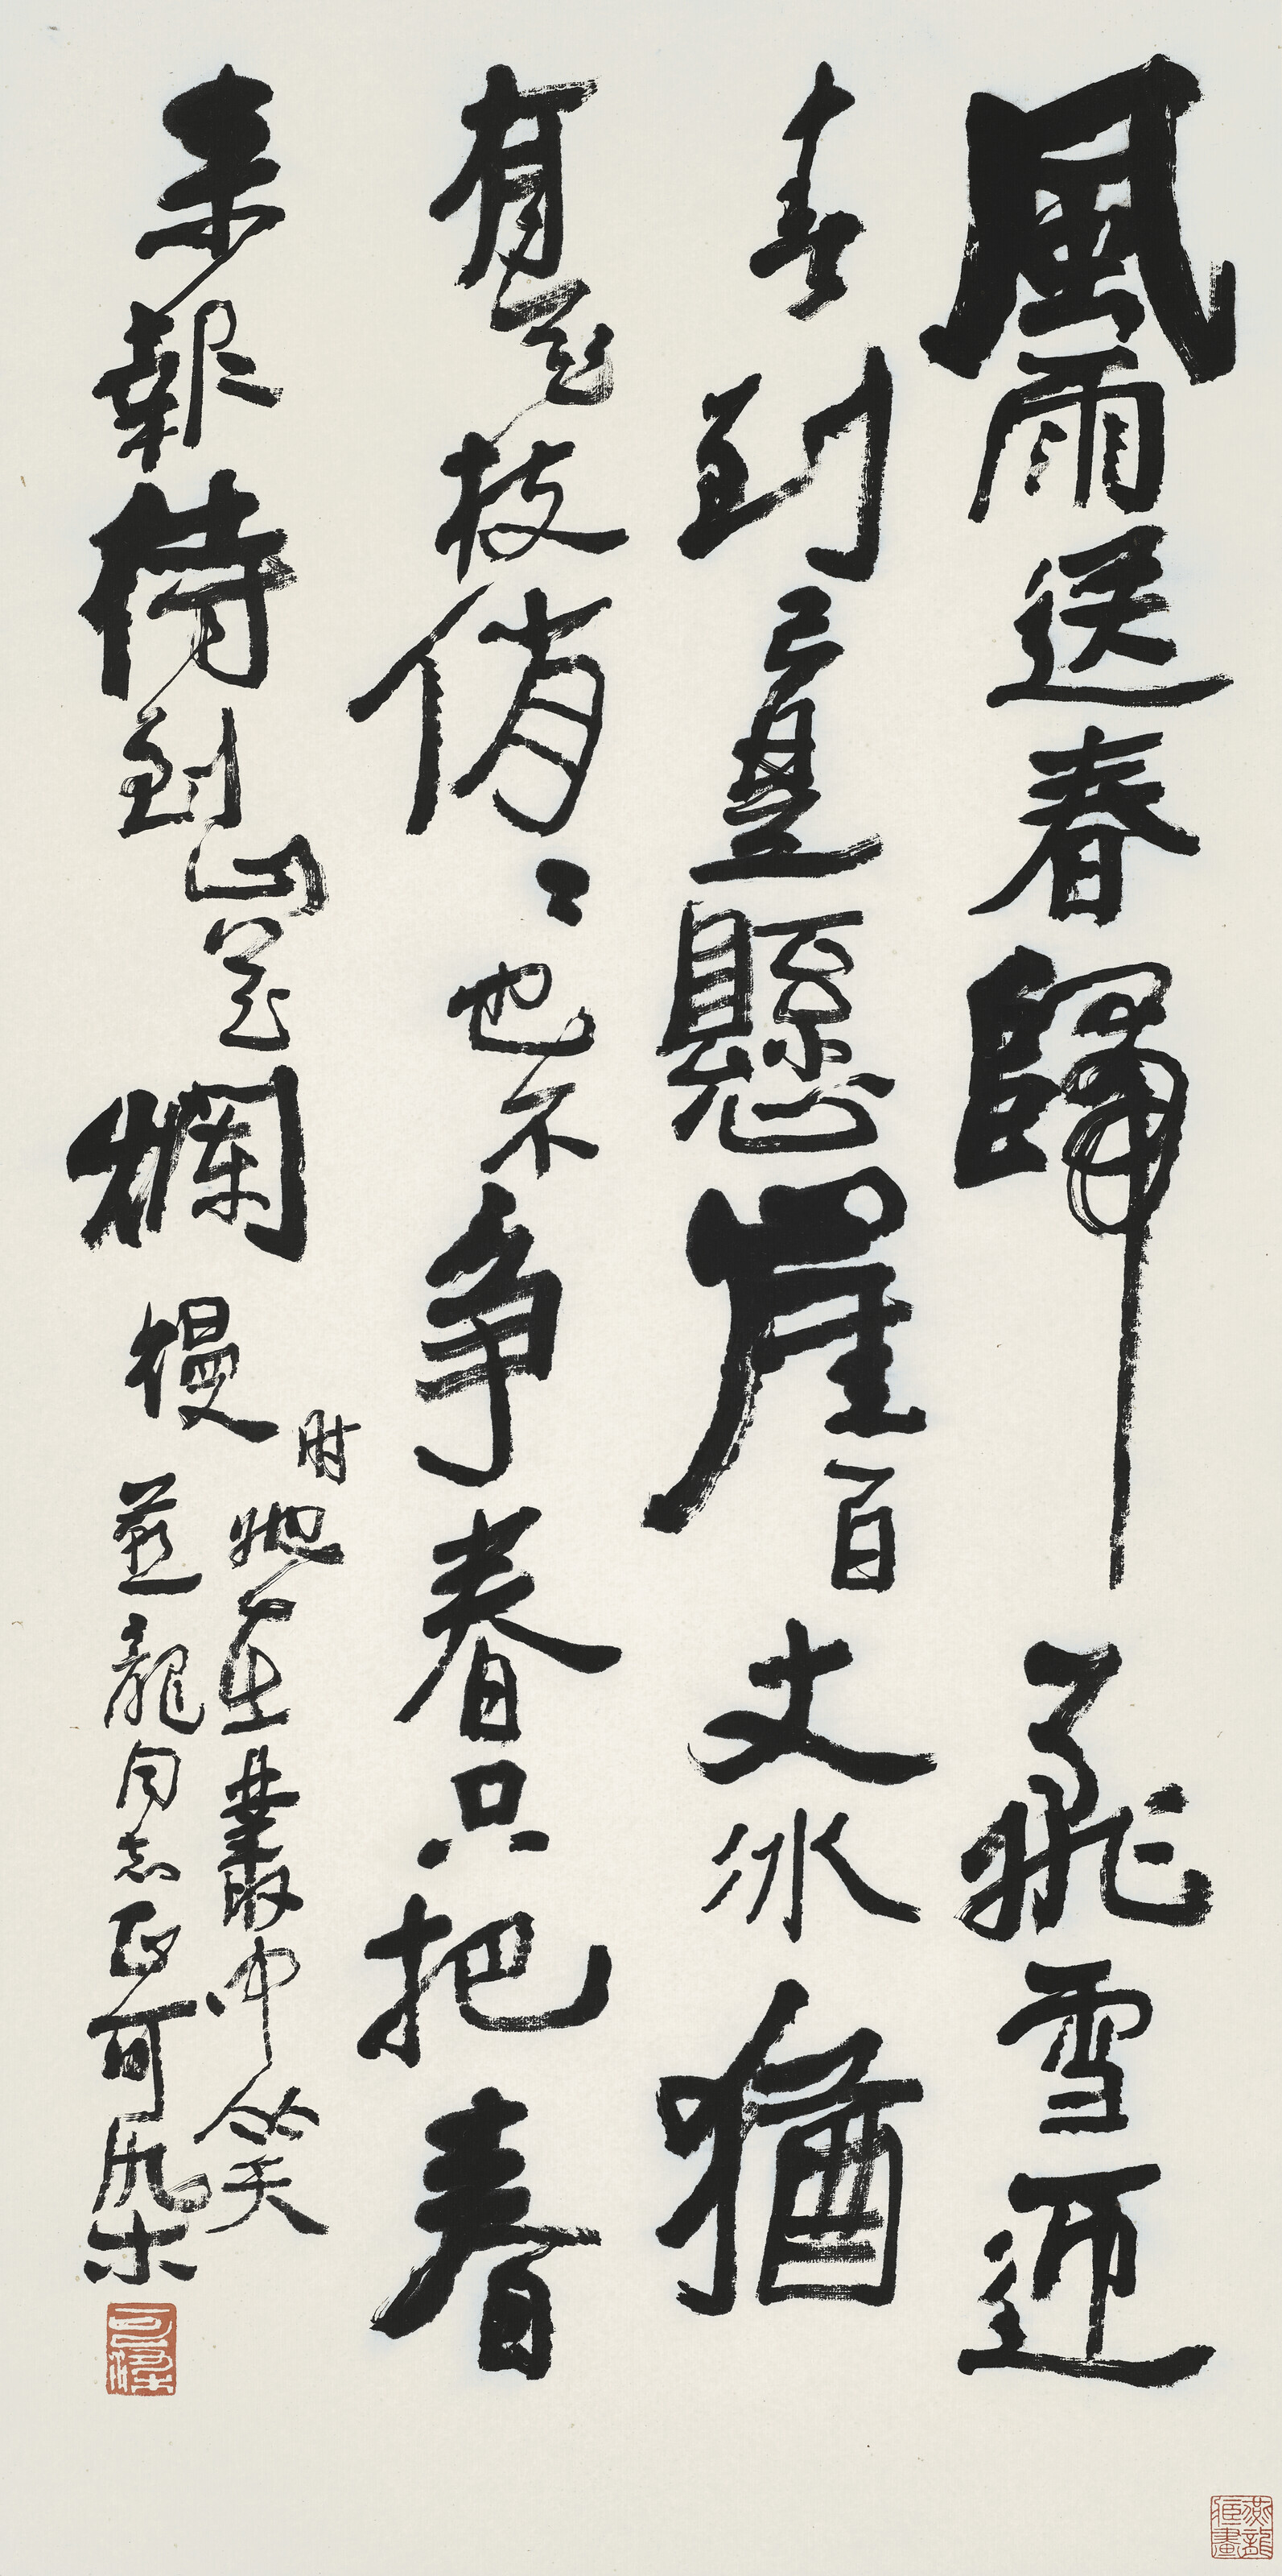 風雨送春歸飛雪迎
春到已是懸崖百丈冰猶
有花枝俏〻也不争春只把春
来報待到山花爛熳
时她在叢中笑
燕龍同志正可染
可染
燕龍